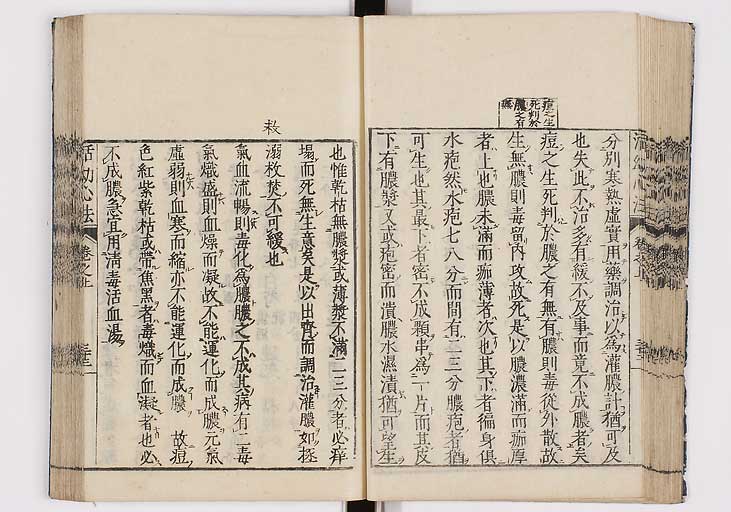 痘之生
死判於
膿之有
無
分別寒熱虛實用藥調治以爲灌膿計猶可及
也失此不治多有緩不及事而竟不成膿者矣
痘之生死判於膿之有無有膿則毒從外散故
生無膿則毒留內攻故死是以膿濃滿而痂厚
者上也膿未滿而痂薄者次也其下者徧身俱
水疱然水疱七八分而間有二三分膿疱者猶
可生也其最下者密不成顆串爲一片而其皮
下有膿漿又或疱密而潰膿水濕漬猶可望生
也惟乾枯無膿漿或薄漿不滿二三分者必痒
塌而死無生意矣是以出齊而調治灌膿如拯
溺救焚不可緩也
救
氣血流暢則毒化爲膿膿之不成其病有二毒
氣熾盛則血燥而凝故不能運化而成膿元氣
虛弱則血寒而縮亦不能運化而成膿 故痘
色紅紫乾枯或帶焦黑者毒熾而血凝者也必
不成膿急宜用淸毒活血湯
活幼心法 卷之上